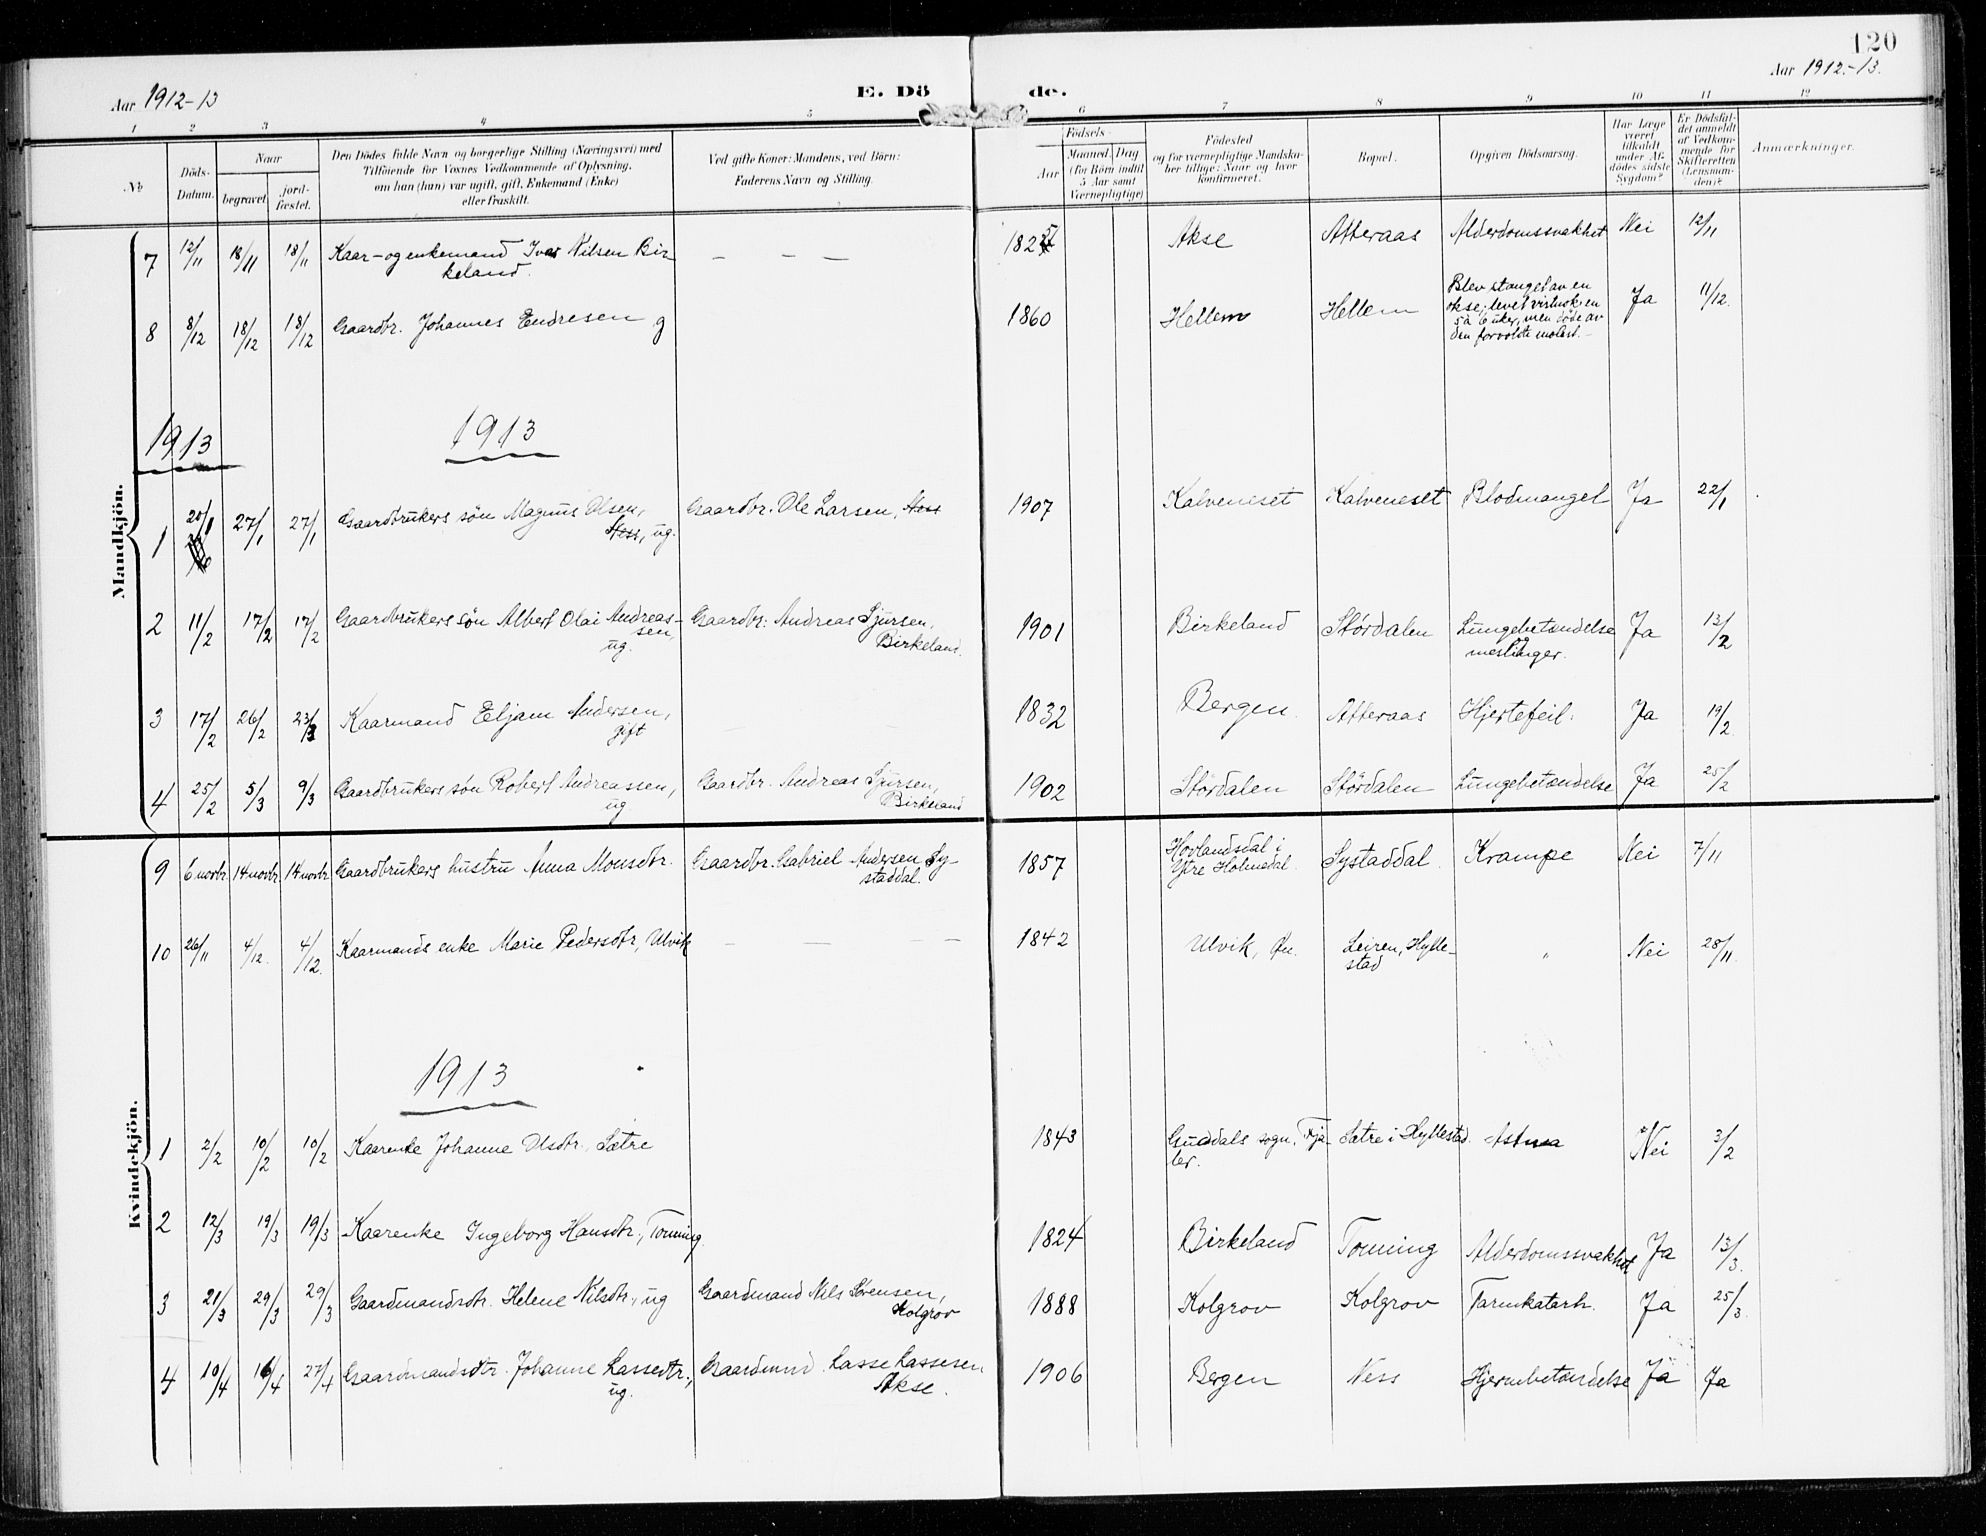 120
Aar 1912-13
E. Dö
de.
Aar 1912-13.
1 2 3 4 5 6 7 8 9 10 11 12
№
Döds-Datum.
Naar
begravet.
jord-fæstet.
Den Dödes fulde Navn og borgerlige Stilling (Næringsvei) med
Tilföiende for Voxnes Vedkommende af Oplysning,
om han (hun) var ugift, gift, Enkemand (Enke)
eller fraskilt.
Ved gifte Koner: Mandens, ved Börn:
Faderens Navn og Stilling.
Födsels-
Aar
Maaned. Dag
(for Börn indtil
5 Aar samt
Værnepligtige)
Födested
og for værnepligtige Mandska-
ber tillige: Naar og hvor
konfirmeret.
Bopæl.
Opgiven Dödsaarsag.
Har Læge
været
tilkaldt
under Af-
dödes sidste
Sygdom?
Er Dödsfal-
det anmeldt
af Vedkom-
mende for
Skifteretten
(Lensman-
den)?
Anmærkninger.
Mandkjön.
7 12/11 18/11 18/11 Kaar- og enkemand Ivar Nilsen Bir- — — — Akse Atteraas Alderdomssvakhet Nei 12/11
keland.
8 8/12 18/12 18/12 Gaardbr. Johannes Endresen g 1860 Hellem Hellem Blev stanget av en Ja 11/12
okse, levet virtnok en
5 à 6 uker, men döde av
den forvoldte molest.
1913 1913
1 20/1 27/1 27/1 Gaardbrukers sön Magnus Olsen, Gaardbr. Ole Larsen, Ness 1907 Kalveneset Kalveneset Blodmangel Ja 22/1
Ness, ug.
2 11/2 17/2 17/2 Gaardbrukers sön Albert Olai Andreas- Gaardbr: Andreas Sjursen, 1901 Birkeland Stórdalen Lungebetændelse Ja 13/2
sen, ug. Birkeland. og meslinger.
3 17/2 26/2 23/3 Kaarmand Eljam Andersen, 1832 Bergen Atteraas Hjertefeil. Ja 19/2
gift
4 25/2 5/3 9/3 Gaardbrukers sön Robert Andreassen, Gaardbr. Andreas Sjursen, 1902 Stórdalen Stórdalen Lungebetændelse Ja 25/2
ug Birkeland
Kvindekjön.
9 6 novbr. 14 novbr. 14 novbr. Gaardbrukers hustru Anna Monsdtr. Gaardbr. Gabriel Andersen Sy- 1857 Hovlandsdal i Systaddal Krampe Nei 7/11
staddal. Ytre Holmedal.
10 26/11 4/12. 4/12. Kaarmands enke Marie Pedersdtr, Ulvik — — — 1842 Ulvik, Leiren, Hylle- " Nei 28/11
stad
1913
1 2/2 10/2 10/2 Kaarenke Johanne Olsdtr. Sætre 1843 Guddals sogn, Fja- Sætre i Hyllestad. Astma Nei 3/2
ler.
2 12/3 19/3 19/3 Kaarenke Ingeborg Hansdtr., Tonning 1824 Birkeland Tonning Alderdomssvakhet Ja 13/3.
3 21/3 29/3 29/3 Gaardmandsdtr. Helene Nilsdtr., ug Gaardmand Nils Sörensen, 1888 Kolgrov Kolgrov Tarmkatarh. Ja 25/3.
Kolgrov
4 10/4 16/4 27/4 Gaardmandsdtr. Johanne Lassedtr., Gaardmand Lasse Lassesen 1906 Bergen Ness Hjernebetændelse Ja Ja
ug. Akse.